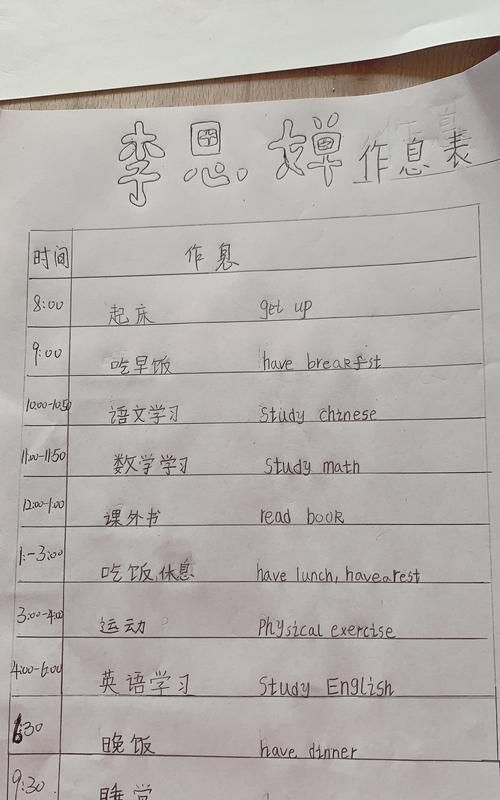 李思婵作息表
时间 作息
8:00 起床 get up
9:00 吃早饭 have brearfst
10:00-10:50 语文学习 Study chinese
11:00-11:50 数学学习 Study math
12:00-1:00 课外书 read book
1:-3:00 吃饭,休息 have lunch, havearest
3:00-4:00 运动 Physical exercise
4:00-6:00 英语学习 Study English
6:30 晚饭 have dinner
9:30 睡觉